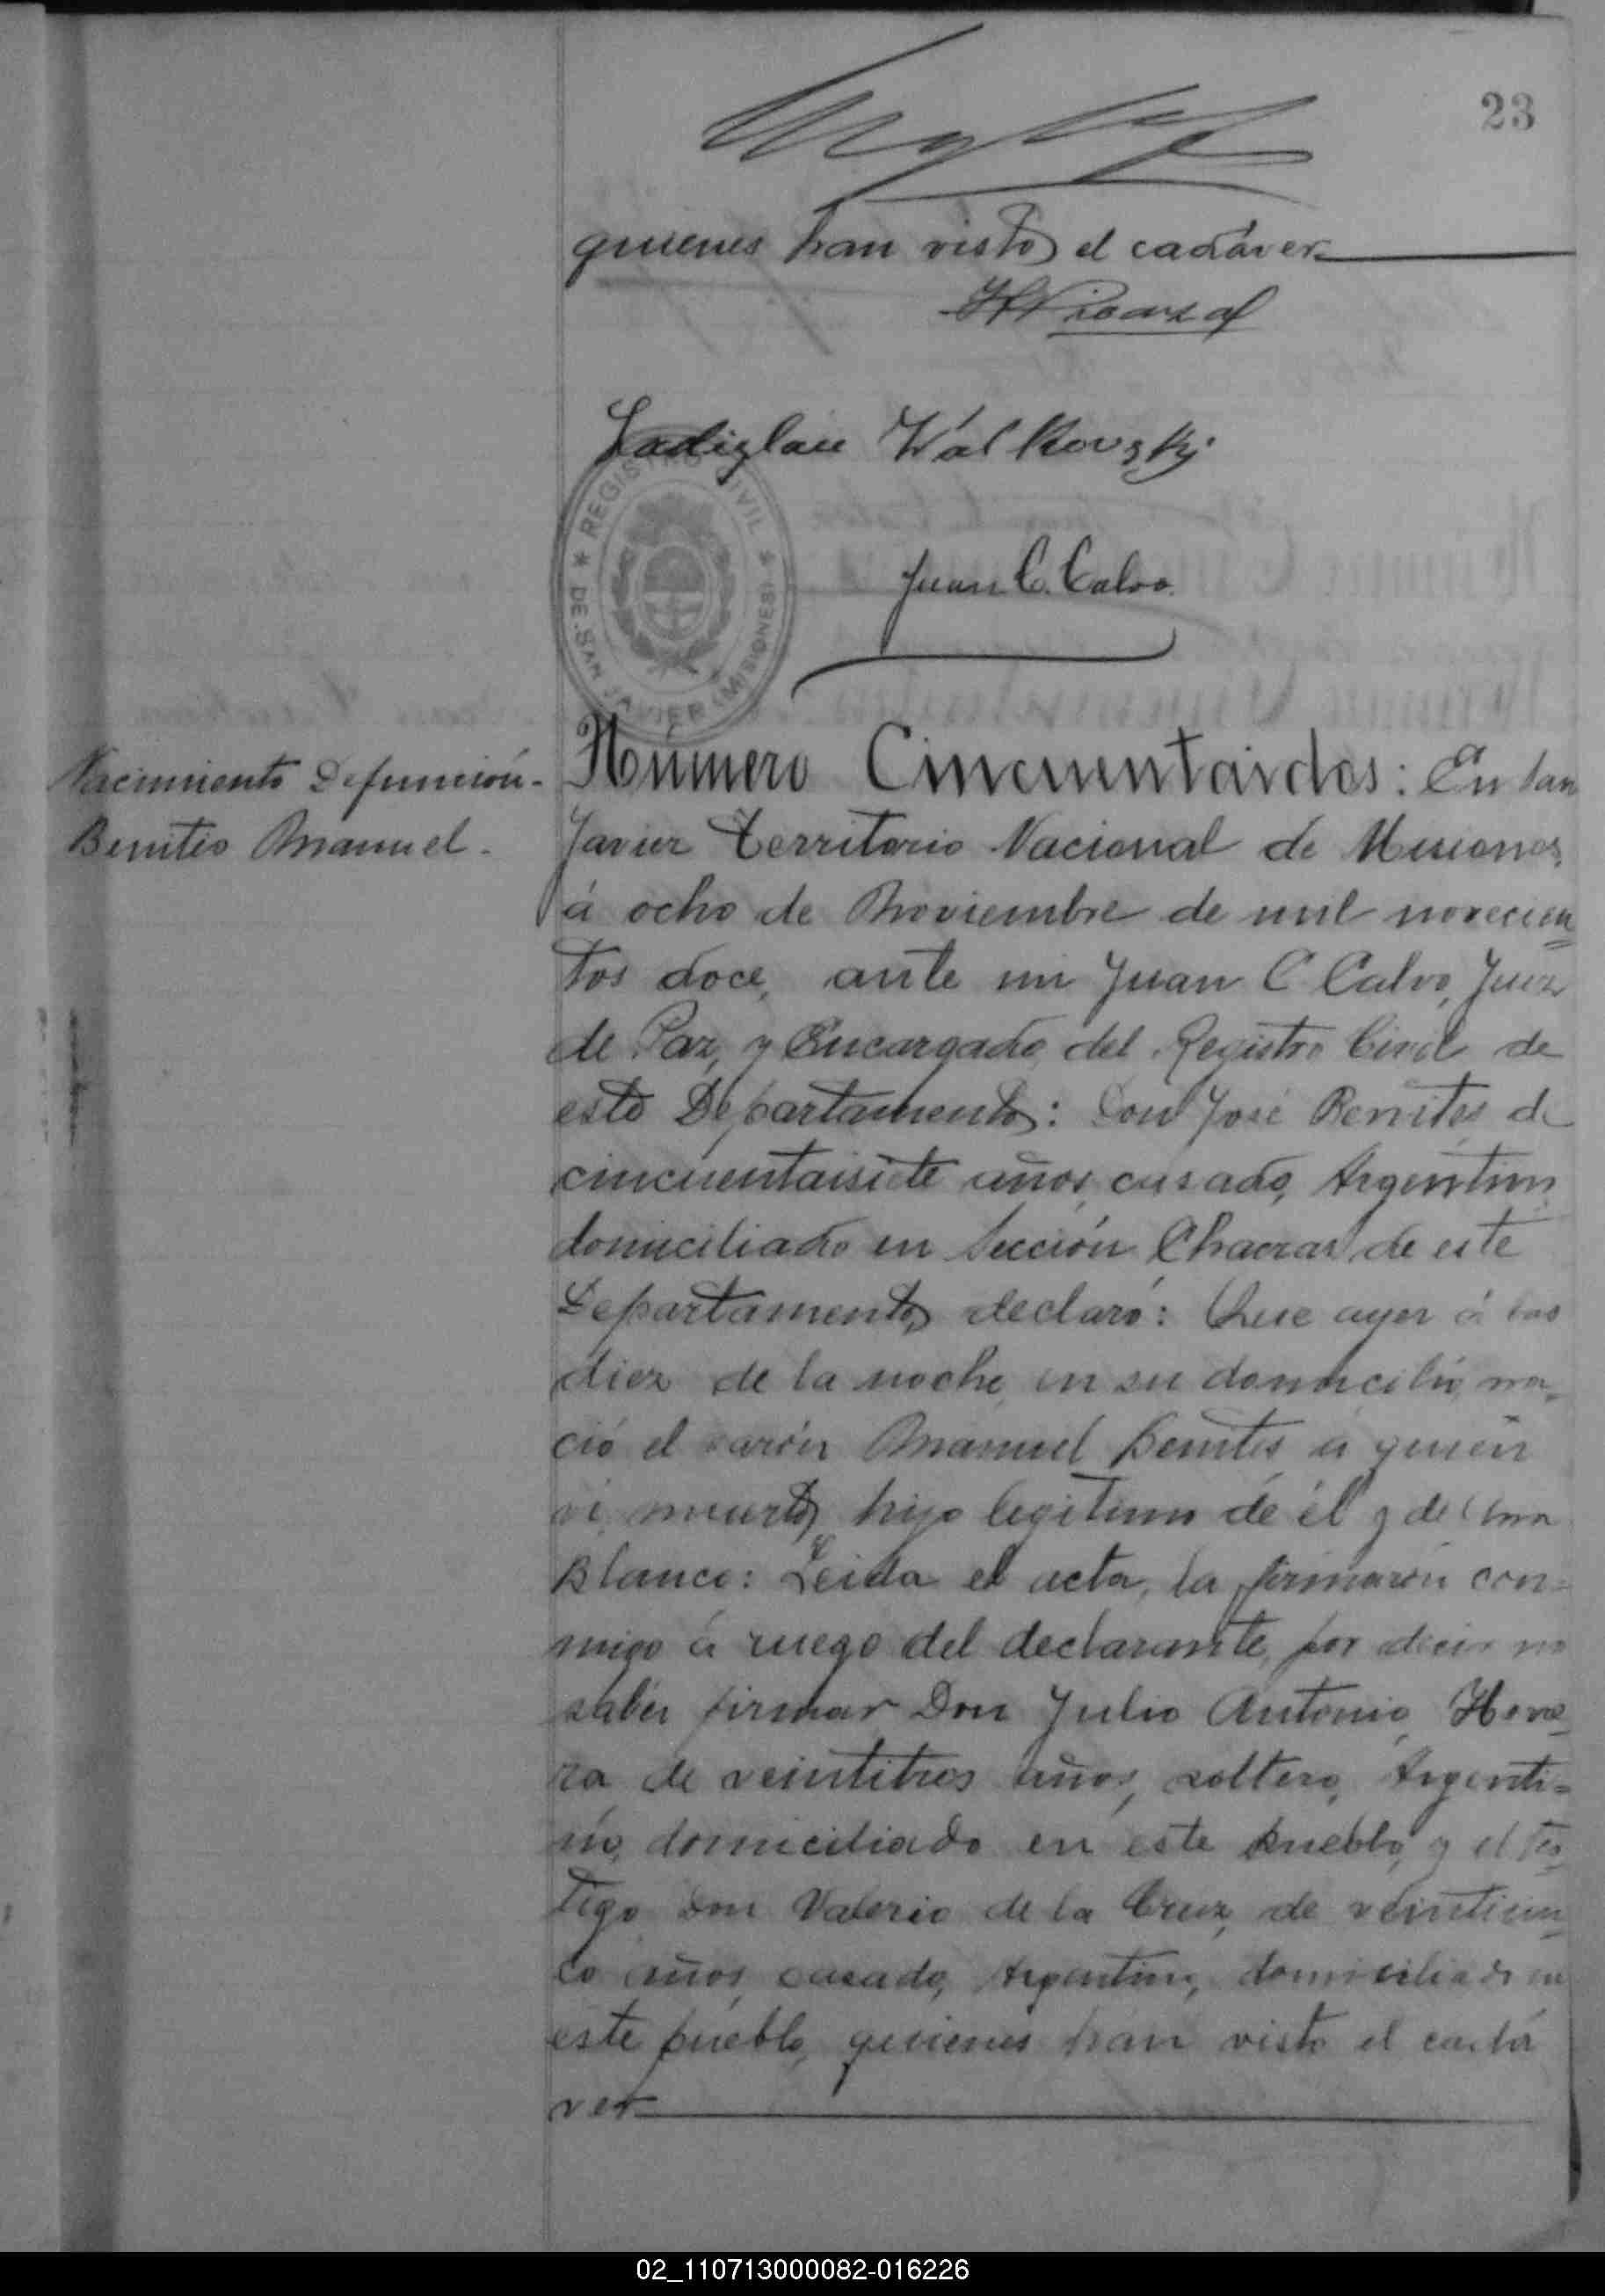 23
quienes han visto el cadáver
Ladizlau Walkovzky
REGISTRO CIVIL
DE SAN JAVIER (MISIONES)
Juan C. Calvo.
Nacimiento Defunción-
Benites Manuel-
Número Cincuentaidos: En San
Javier Territorio Nacional de Misiones,
á ocho de Noviembre de mil novecien
tos doce, ante mi Juan C Calvo, Juez
de Paz, y Encargado del Registro Civil de
este Departamento: Don José Benites de
cincuentaisiete años, casado, Argentino
domiciliado en Sección Chacras de este
Departamento, declaró: Que ayer á las
diez de la noche, en su domicilio, na-
ció el varón Manuel Benites á quien
vi muerto, hijo legitimo de él y de
Blanco: Leida el acta, la firmarón con=
migo á ruego del declarante, por decir no
saber firmar Don Julio Antonio
ra de veintitres años, soltero, Argenti=
no, domiciliado en este pueblo, y el tes
tigo Don Valerio de la Cruz, de veinticin
co años, casado, Argentino, domiciliado en
este pueblo, quienes han visto el cadá
ver
02_110713000082-016226